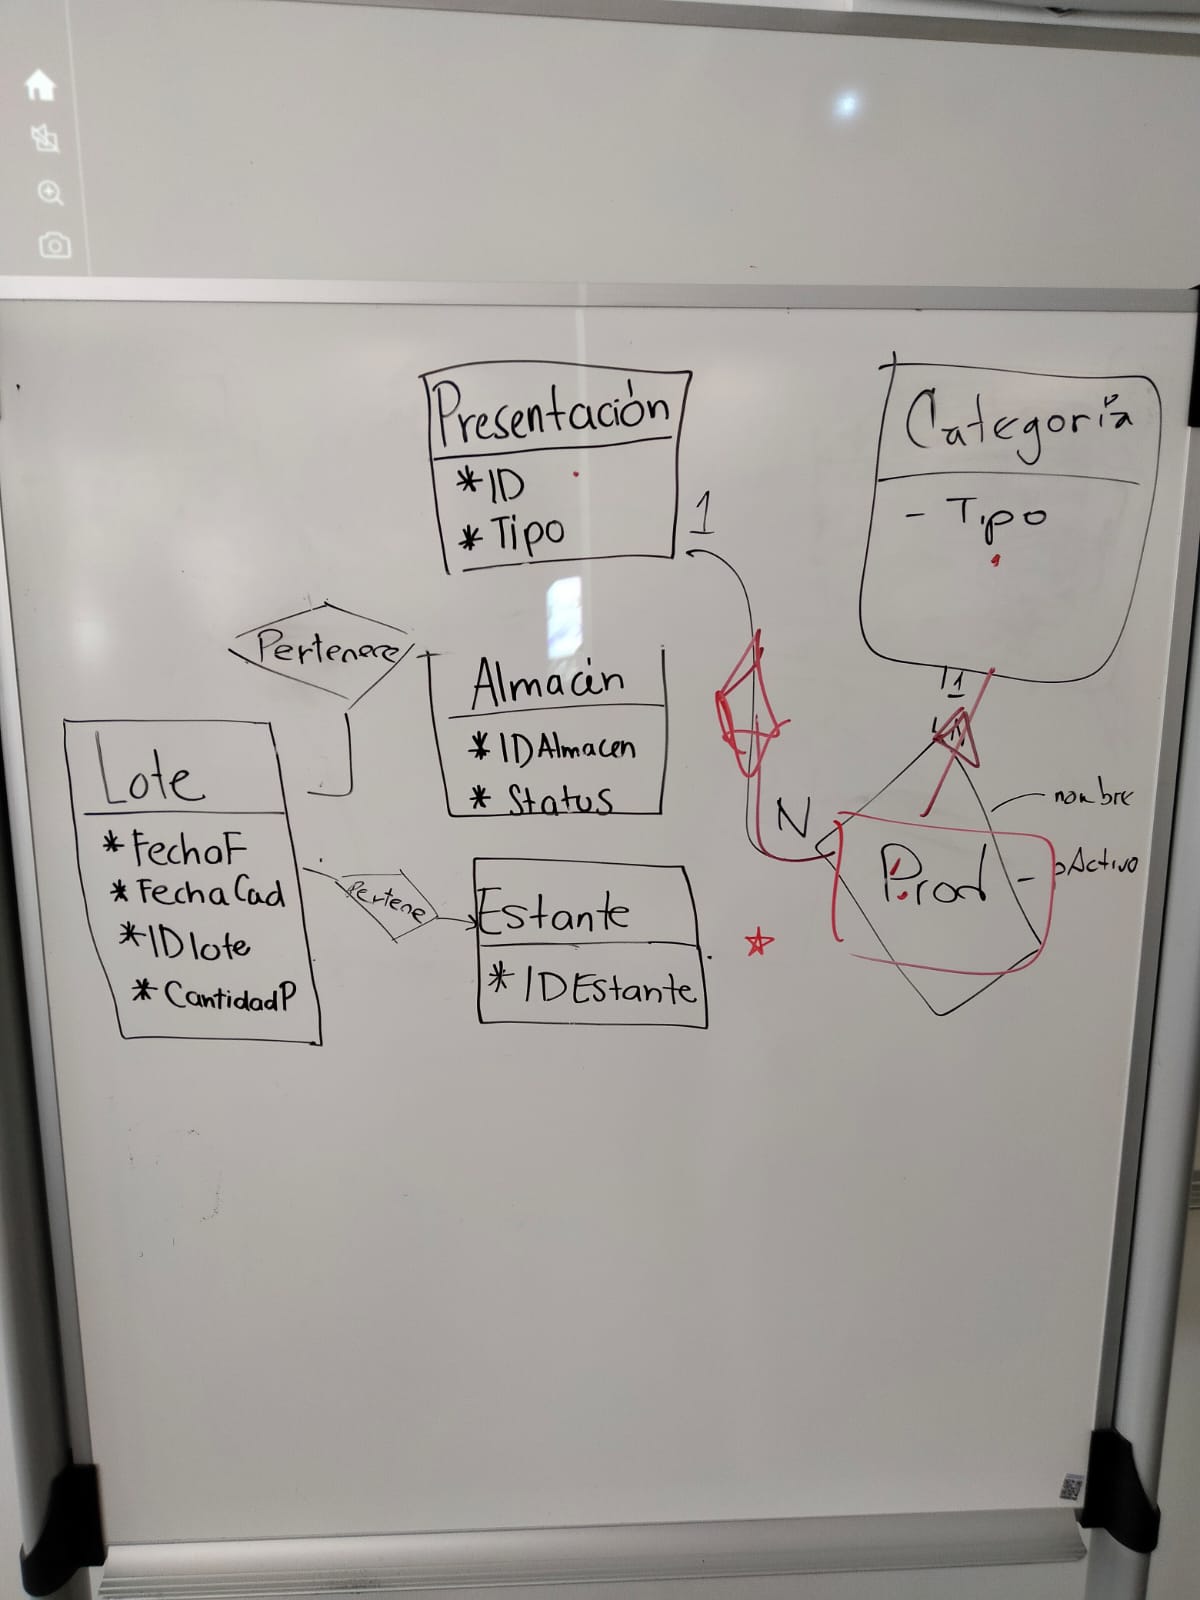 Presentación
*ID
*Tipo
1
Categoría
- Tipo
1
Pertenece
Almacén
*IDAlmacen
*Status
Lote
*FechaF
*FechaCad
*IDlote
*CantidadP
Pertene
Estante
*IDEstante
N
Prod
nombre
pActivo